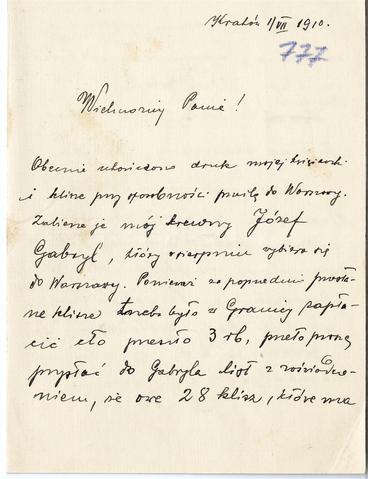 Kraków 1/VII 1910.
777
Wielmożny Panie!
Obecnie ukończono druk mojej książeczki
i klisze przy sposobności prześlę do Warszawy.
Zabierze je mój krewny Józef
Gabryl, który w sierpniu wybiera się
do Warszawy. Ponieważ za poprzednio przesłane
klisze trzeba było w Granicy zapłacić
cło przeszło 3 rb, przeto proszę
przysłać do Gabryla list z zaświadczeniem,
że owe 28 klisz, które ma